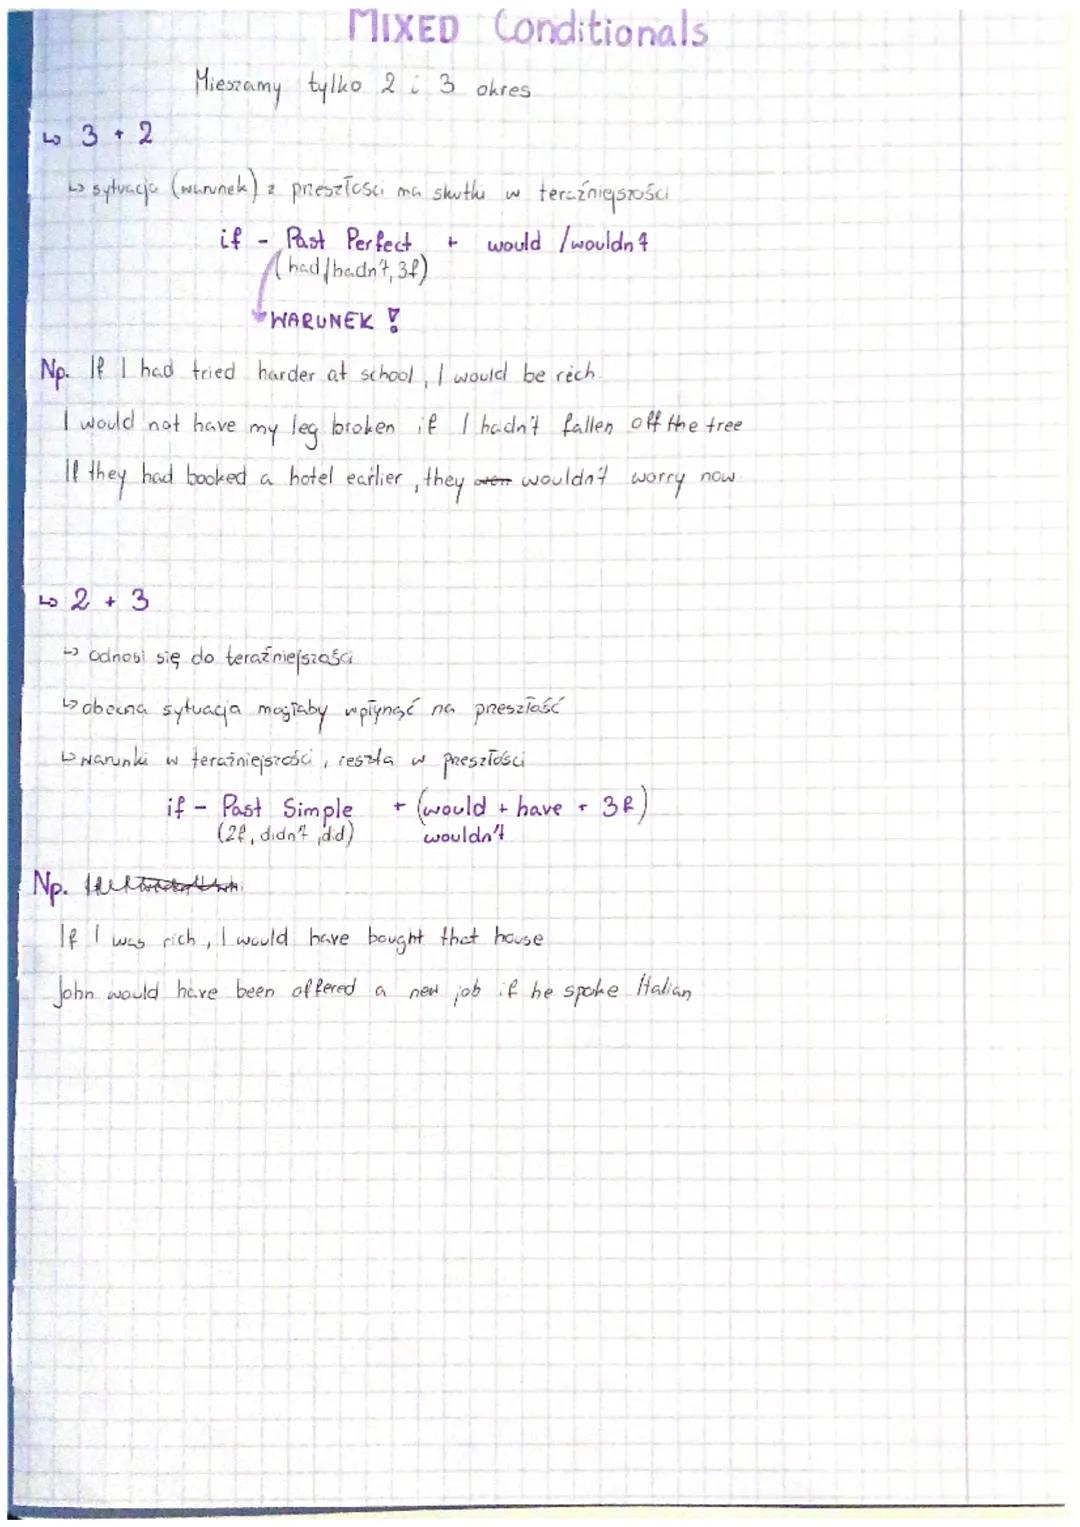 MIXED Conditionals
Mieszamy tylko 2 i 3 okres
↳ 3 + 2
↳ sytuacja (warunek) z przeszłości ma skutki w teraźniejszości
if - Past Perfect + would / wouldn't
(had/hadn't, 3f)
WARUNEK !
Np. If I had tried harder at school, I would be rich
I would not have my leg broken if I hadn't fallen off the tree
If they had booked a hotel earlier, they wouldn't worry now
↳ 2 + 3
↳ odnosi się do teraźniejszości
↳ obecna sytuacja mogłaby wpłynąć na przeszłość
↳ warunki w teraźniejszości, reszta w przeszłości
if - Past Simple + (would + have + 3f)
(2f, didn't, did) wouldn't
Np.
If I was rich, I would have bought that house
John would have been offered a new job if he spoke Italian